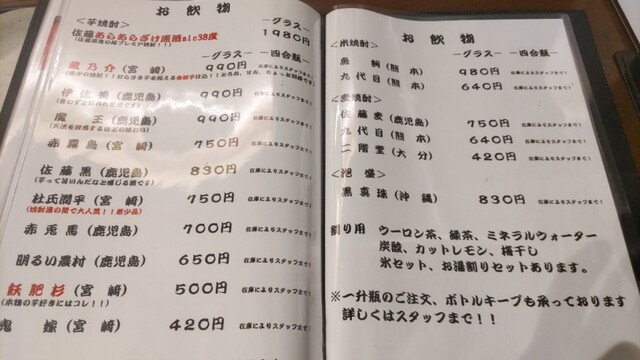 お飲物
<芋焼酎>
－グラス－
佐藤あらあらざけ原酒alc38度 1980円
－グラス－ －四合瓶－
蔵乃介(宮 崎) 990円
伊佐美(鹿児島) 990円 在庫によりスタッフまで!
魔 王(鹿児島) 990円 在庫によりスタッフまで!
赤霧島(宮 崎) 750円 在庫によりスタッフまで!
佐藤黒(鹿児島) 830円 在庫によりスタッフまで!
(芋って旨いんだなと感じる酒です)
杜氏潤平(宮 崎) 750円 在庫によりスタッフまで!
(焼酎通の間で大人気!!希少品)
赤兎馬(鹿児島) 700円 在庫によりスタッフまで!
明るい農村(鹿児島) 650円 在庫によりスタッフまで!
飫肥杉(宮 崎) 500円 在庫によりスタッフまで!
(本格の芋好きにはコレ!!)
鬼 嫁(宮 崎) 420円 在庫によりスタッフまで!
お飲物
<米焼酎>
－グラス－ －四合瓶－
鳥 飼(熊 本) 980円 在庫によりスタッフまで!
九代目(熊 本) 640円 在庫によりスタッフまで!
<麦焼酎>
佐藤麦(鹿児島) 750円 在庫によりスタッフまで!
九代目(熊 本) 640円 在庫によりスタッフまで!
二階堂(大 分) 420円 在庫によりスタッフまで!
<泡 盛>
黒真珠(沖 縄) 830円 在庫によりスタッフまで!
割り用 ウーロン茶、緑茶、ミネラルウォーター
炭酸、カットレモン、梅干し
氷セット、お湯割りセットあります。
※一升瓶のご注文、ボトルキープも承っております
詳しくはスタッフまで!!